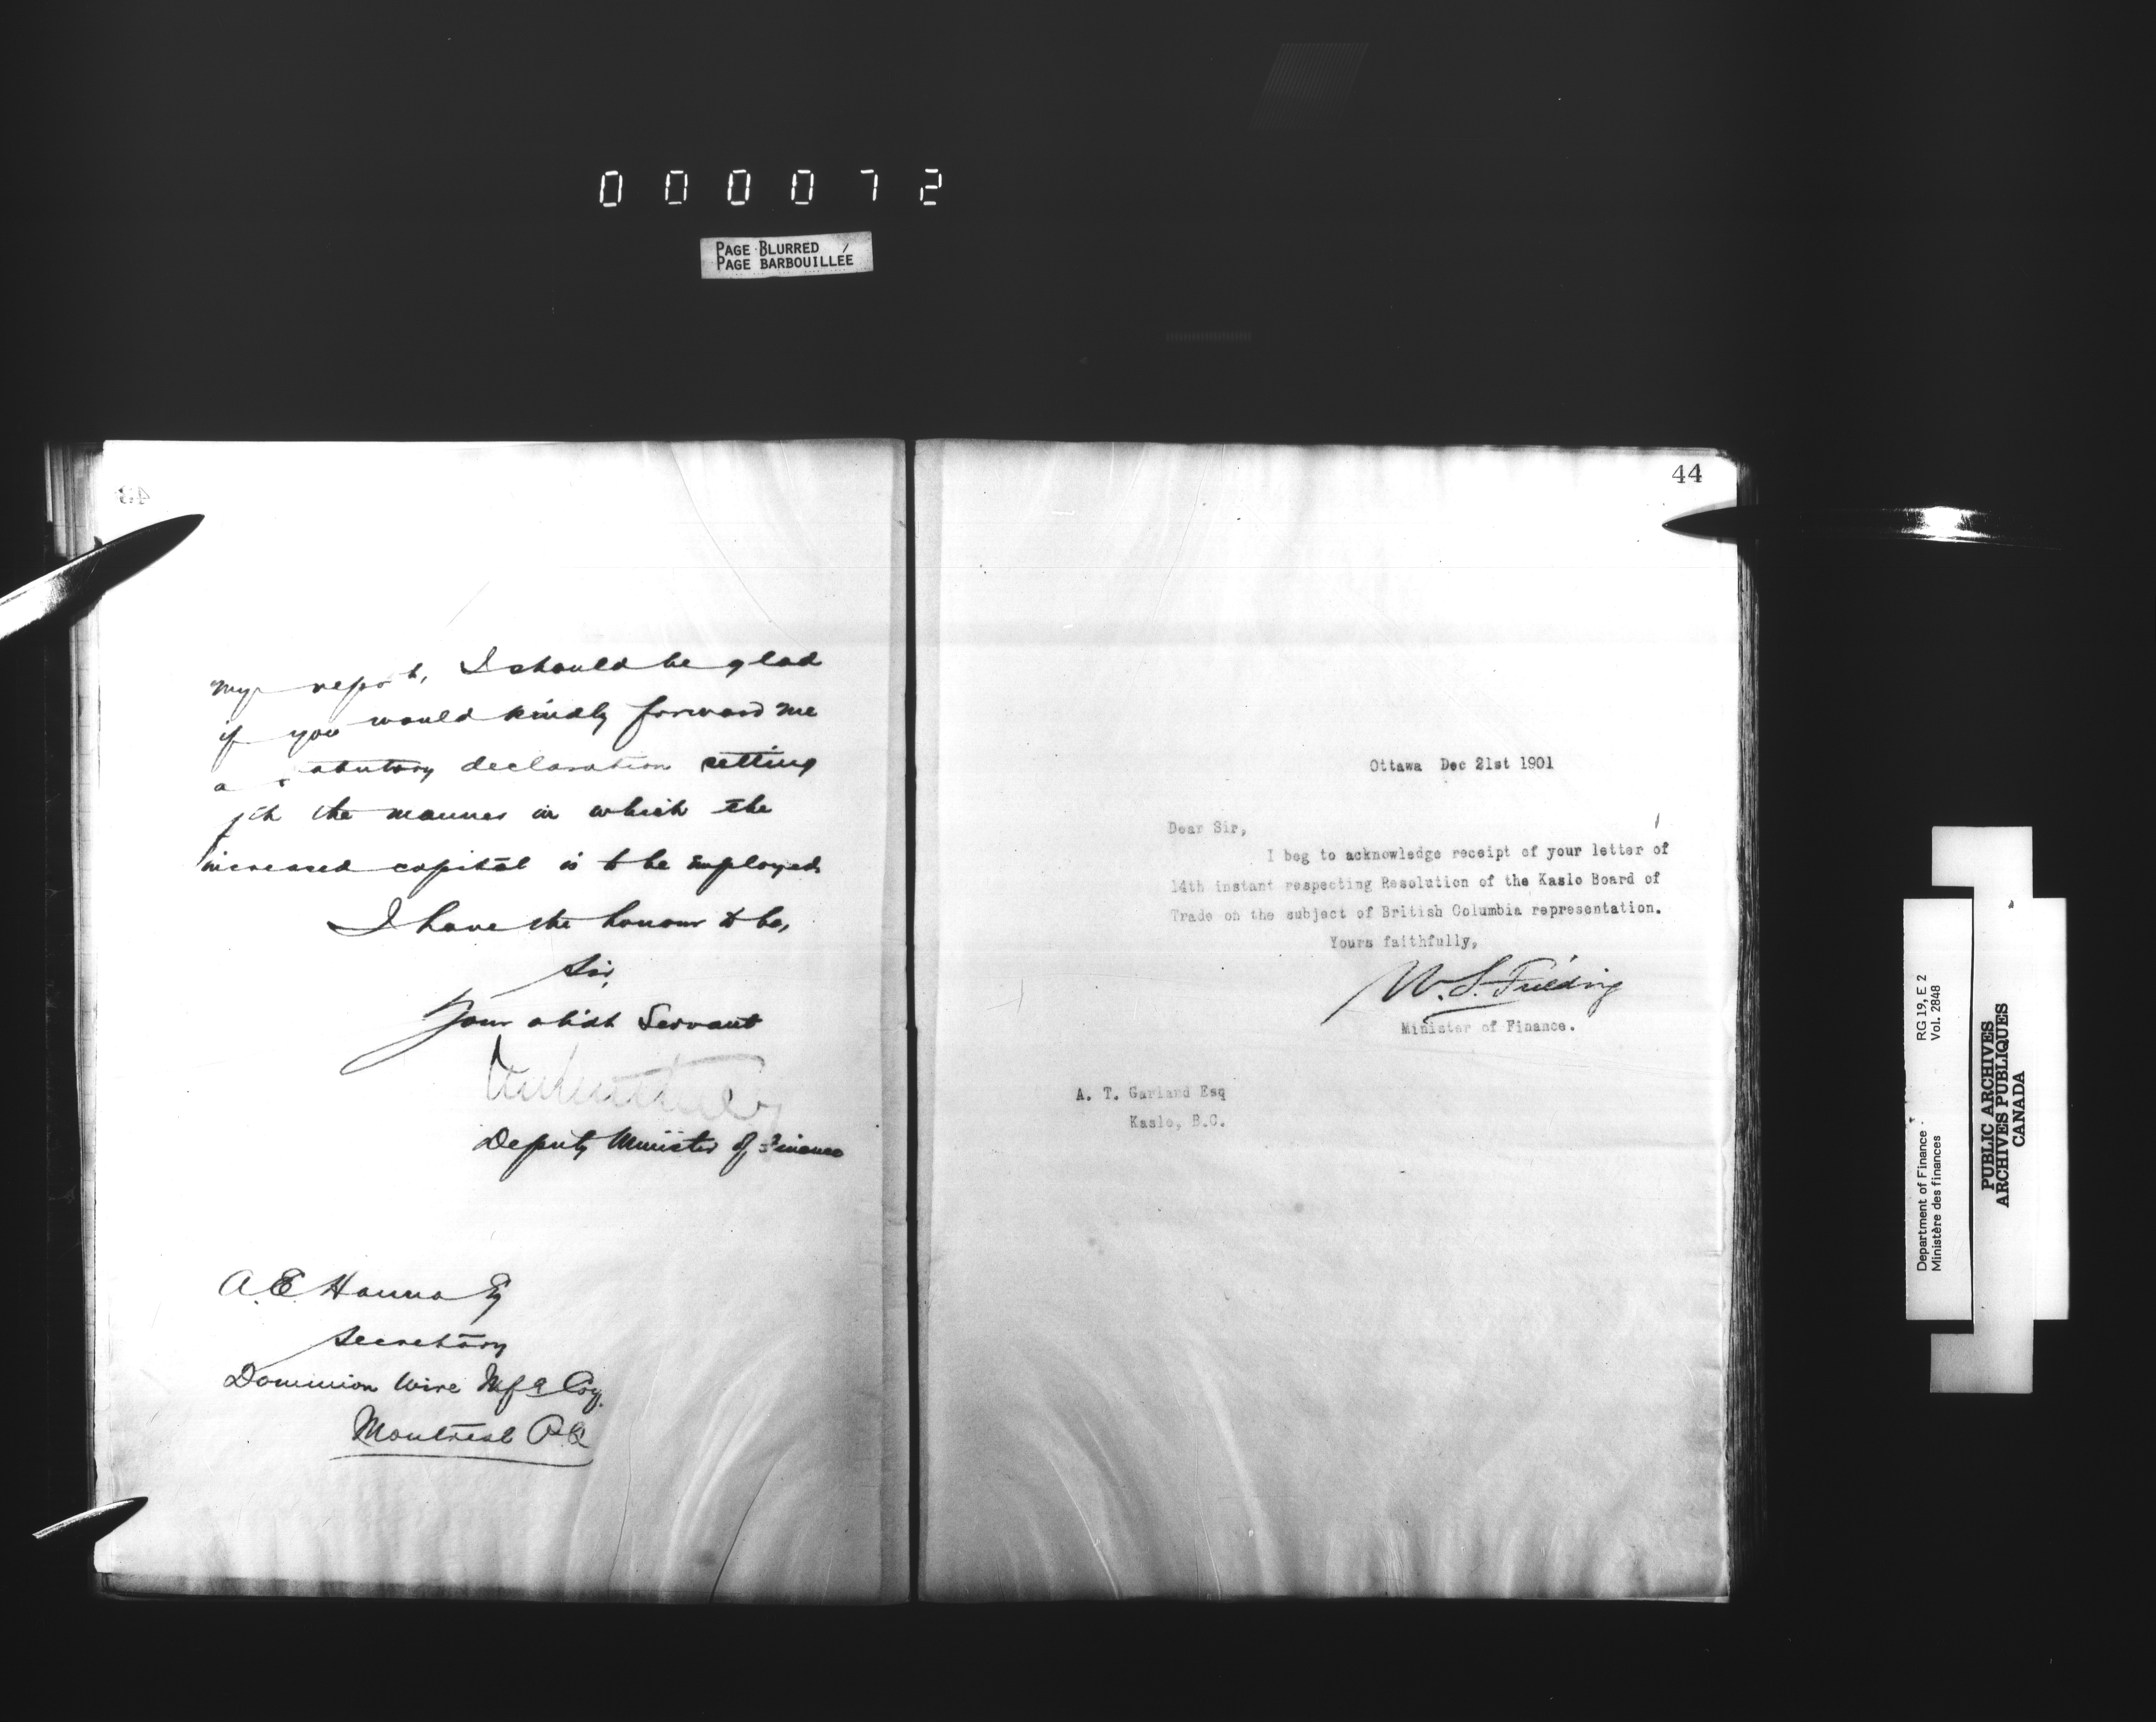 0 0 0 0 7 2
PAGE BLURRED
PAGE BARBOUILLÉE
43
my report, I should be glad
if you would kindly forward me
a statutory declaration setting
forth the manner in which the
increased capital is to be employed.
I have the honour to be,
Sir,
Your obdt Servant
Deputy Minister of Finance
A. E. Hanna Esq
Secretary
Dominion Wire Mfg Coy.
Montreal P.Q
44
Ottawa Dec 21st 1901
Dear Sir,
I beg to acknowledge receipt of your letter of
14th instant respecting Resolution of the Kaslo Board of
Trade on the subject of British Columbia representation.
Yours faithfully,
W. S. Fielding
Minister of Finance.
A. T. Garland Esq
Kaslo, B.C.
Department of Finance RG 19, E 2
Ministère des finances Vol. 2848
PUBLIC ARCHIVES
ARCHIVES PUBLIQUES
CANADA